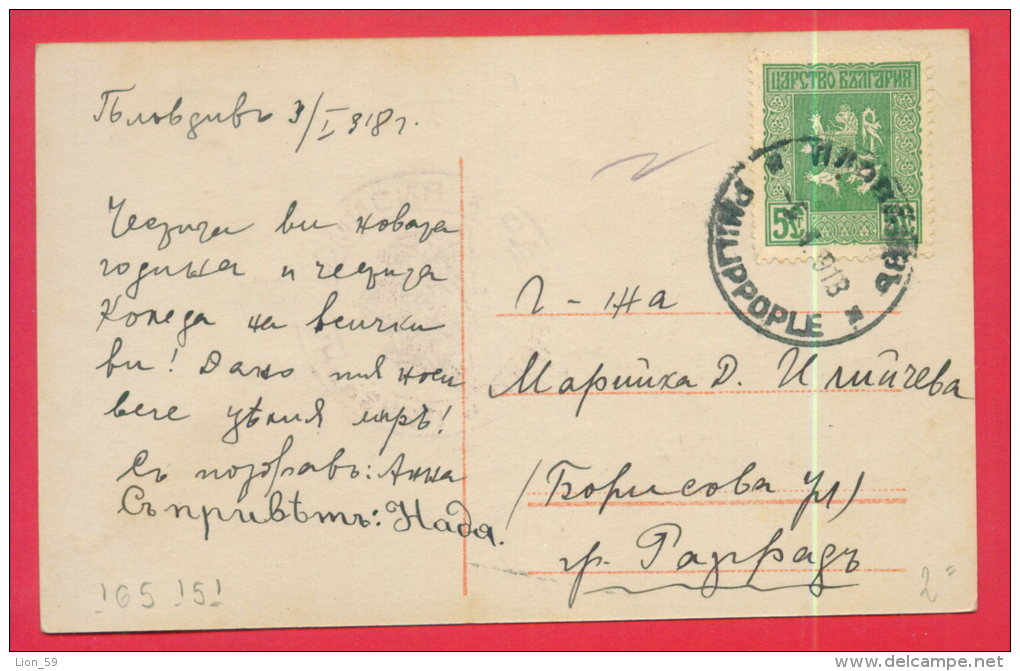 Пловдивъ 3/I 918 г.
Честита ви новата
година и честита
Коледа на всички
ви! Дано тия носи
вече цѣлия миръ!
Съ поздравъ: Анка
Съ привѣтъ: Надя.
ЦАРСТВО БЪЛГАРИЯ
5 5
ПЛОВДИВЪ
PHILIPPOPLE
Г-жа
Марийка Д. Илийчева
(Борисова ул)
гр. Разградъ
165151
2
Lion_59
delcampe.net